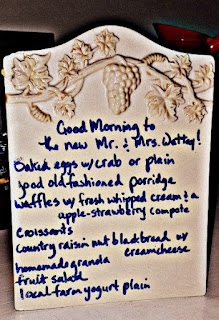 Good Morning to
the new Mr. & Mrs. Wettey!
Baked eggs w/crab or plain
good old-fashioned porridge
Waffles w/ fresh whipped cream & a
apple-strawberry compote
Croissants
Country raisin nut black bread w/
cream cheese
homemade granola
fruit salad
local farm yogurt plain